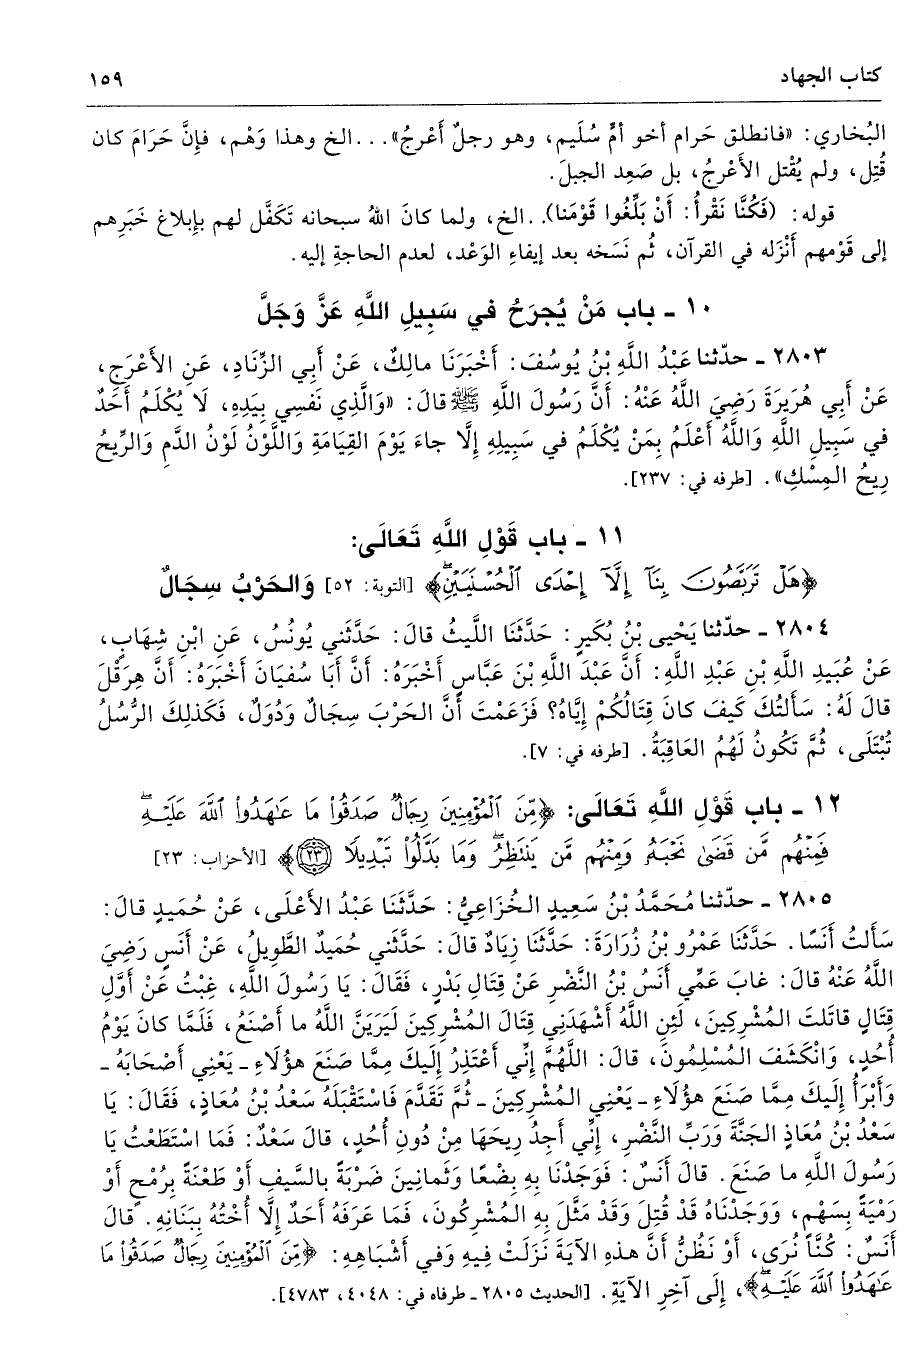 كتاب الجهاد ١٥٩
البُخاري: «فانطلق حَرام أخو أمِّ سُلَيم، وهو رجلٌ أَعْرجُ»...الخ وهذا وَهْم، فإنَّ حَرَامَ كان
قُتِل، ولم يُقْتل الأَعْرجُ، بل صَعِد الجبلَ.
قوله: (فَكُنَّا نَقْرأُ: أَنْ بَلِّغُوا قَوْمَنا)...الخ، ولما كانَ اللهُ سبحانه تَكَفَّل لهم بإبلاغِ خَبَرِهم
إلى قَوْمهم أَنْزله في القرآن، ثُم نَسَخه بعد إيفاءِ الوَعْد، لعدم الحاجةِ إليه.
١٠ ـ باب مَنْ يُجرَحُ في سَبِيلِ اللَّهِ عَزَّ وَجَلَّ
٢٨٠٣ ـ حدّثنا عَبْدُ اللَّهِ بْنُ يُوسُفَ: أَخْبَرَنَا مالِكٌ، عَنْ أَبِي الزِّنَادِ، عَنِ الأَعْرَجِ،
عَنْ أَبِي هُرَيرَةَ رَضِيَ اللَّهُ عَنْهُ: أَنَّ رَسُولَ اللَّهِ ﷺ قالَ: «وَالَّذِي نَفْسِي بِيَدِهِ، لَا يُكْلَمُ أَحَدٌ
في سَبِيلِ اللَّهِ وَاللَّهُ أَعْلَمُ بِمَنْ يُكْلَمُ في سَبِيلِهِ إِلَّا جاءَ يَوْمَ القِيَامَةِ وَاللَّوْنُ لَوْنُ الدَّمِ وَالرِّيحُ
رِيحُ المِسْكِ». [طرفه في: ٢٣٧].
١١ ـ باب قَوْلِ اللَّهِ تَعَالَى:
﴿هَلْ تَرَبَّصُونَ بِنَآ إِلَّآ إِحْدَى ٱلْحُسْنَيَيْنِۖ﴾ [التوبة: ٥٢] وَالحَرْبُ سِجَالٌ
٢٨٠٤ ـ حدّثنا يَحْيى بْنُ بُكَيرٍ: حَدَّثَنَا اللَّيثُ قالَ: حَدَّثَني يُونُسُ، عَنِ ابْنِ شِهَابٍ،
عَنْ عُبَيدِ اللَّهِ بْنِ عَبْدِ اللَّهِ: أَنَّ عَبْدَ اللَّهِ بْنَ عَبَّاسٍ أَخْبَرَهُ: أَنَّ أَبَا سُفيَانَ أَخْبَرَهُ: أَنَّ هِرَقْلَ
قالَ لَهُ: سَأَلتُكَ كَيفَ كانَ قِتَالُكُمْ إِيَّاهُ؟ فَزَعَمْتَ أَنَّ الحَرْبَ سِجَالٌ وَدُوَلٌ، فَكَذلِكَ الرُّسُلُ
تُبْتَلَى، ثُمَّ تَكُونُ لَهُمُ العَاقِبَةُ. [طرفه في: ٧].
١٢ ـ باب قَوْلِ اللَّهِ تَعَالَى: ﴿مِّنَ ٱلْمُؤْمِنِينَ رِجَالٌ صَدَقُوا۟ مَا عَـٰهَدُوا۟ ٱللَّهَ عَلَيْهِۖ
فَمِنْهُم مَّن قَضَىٰ نَحْبَهُۥ وَمِنْهُم مَّن يَنتَظِرُۖ وَمَا بَدَّلُوا۟ تَبْدِيلًا ٢٣﴾ [الأحزاب: ٢٣]
٢٨٠٥ ـ حدّثنا مُحَمَّدُ بْنُ سَعِيدٍ الخُزَاعِيُّ: حَدَّثَنَا عَبْدُ الأَعْلَى، عَنْ حُمَيدٍ قالَ:
سَأَلتُ أَنَسًا. حَدَّثَنَا عَمْرُو بْنُ زُرَارَةَ: حَدَّثَنَا زِيَادٌ قالَ: حَدَّثَني حُمَيدٌ الطَّوِيلُ، عَنْ أَنَسٍ رَضِيَ
اللَّهُ عَنْهُ قالَ: غابَ عَمِّي أَنَسُ بْنُ النَّضْرِ عَنْ قِتَالِ بَدْرٍ، فَقَالَ: يَا رَسُولَ اللَّهِ، غِبْتُ عَنْ أَوَّلِ
قِتَالٍ قاتَلتَ المُشْرِكِينَ، لَئِنِ اللَّهُ أَشْهَدَنِي قِتَالَ المُشْرِكِينَ لَيَرَيَنَّ اللَّهُ ما أَصْنَعُ، فَلَمَّا كانَ يَوْمُ
أُحُدٍ، وَانْكَشَفَ المُسْلِمُونَ، قالَ: اللَّهُمَّ إِنِّي أَعْتَذِرُ إِلَيكَ مِمَّا صَنَعَ هؤُلَاءِ ـ يَعْنِي أَصْحَابَهُ ـ
وَأَبْرَأُ إِلَيكَ مِمَّا صَنَعَ هؤُلَاءِ ـ يَعْنِي المُشْرِكِينَ ـ ثُمَّ تَقَدَّمَ فَاسْتَقْبَلَهُ سَعْدُ بْنُ مُعَاذٍ، فَقَالَ: يَا
سَعْدُ بْنَ مُعَاذٍ الجَنَّةَ وَرَبِّ النَّضْرِ، إِنِّي أَجِدُ رِيحَهَا مِنْ دُونِ أُحُدٍ، قالَ سَعْدٌ: فَمَا اسْتَطَعْتُ يَا
رَسُولَ اللَّهِ ما صَنَعَ. قالَ أَنَسٌ: فَوَجَدْنَا بِهِ بِضْعًا وَثَمانِينَ ضَرْبَةً بالسَّيفِ أَوْ طَعْنَةً بِرُمْحٍ أَوْ
رَمْيَةً بِسَهْمٍ، وَوَجَدْنَاهُ قَدْ قُتِلَ وَقَدْ مَثَّلَ بِهِ المُشْرِكُونَ، فَما عَرَفَهُ أَحَدٌ إِلَّا أُخْتُهُ بِبَنَانِهِ. قالَ
أَنَسٌ: كُنَّا نُرَى، أَوْ نَظُنُّ أَنَّ هذهِ الآيَةَ نَزَلَتْ فِيهِ وَفي أَشْبَاهِهِ: ﴿مِّنَ ٱلْمُؤْمِنِينَ رِجَالٌ صَدَقُوا۟ مَا
عَـٰهَدُوا۟ ٱللَّهَ عَلَيْهِۖ﴾، إِلَى آخِرِ الآيَةِ. [الحديث ٢٨٠٥ ـ طرفاه في: ٤٠٤٨، ٤٧٨٣].